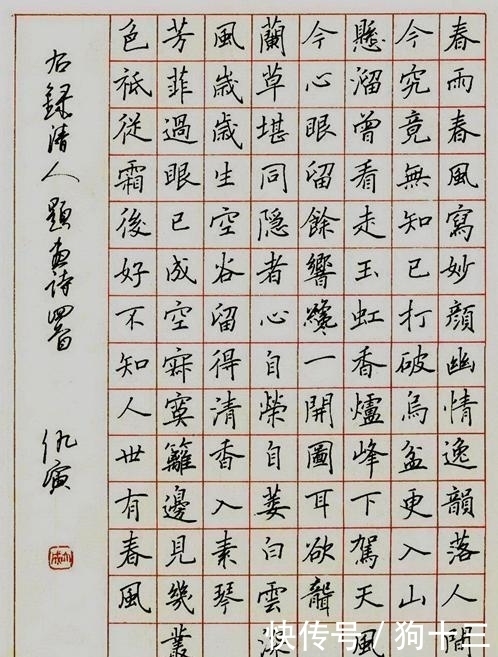 春雨春風寫妙顔幽情逸韻落人間
今究竟無知己打破烏盆更入山
懸溜曾看走玉虹香爐峰下駕天風
今心眼留餘響纔一開圖耳欲聾
蘭草堪同隱者心自榮自萎白雲深
風歲歲生空谷留得清香入素琴
芳菲過眼已成空寂寞籬邊見幾叢
色祗從霜後好不知人世有春風
右録清人題畫詩四首
仇寅
快传号/狗十三